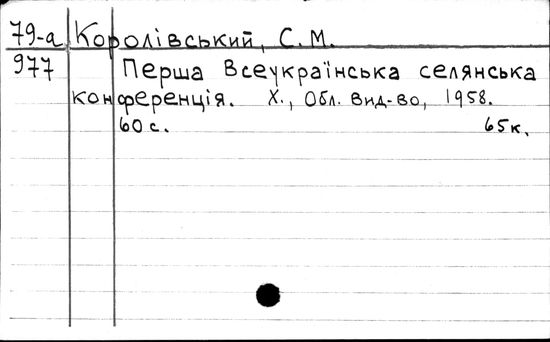 79-а Королівський, С. М.
977 Перша Всеукраїнська селянська
конференція. Х., Обл. вид-во, 1958.
60 с. 65 к.